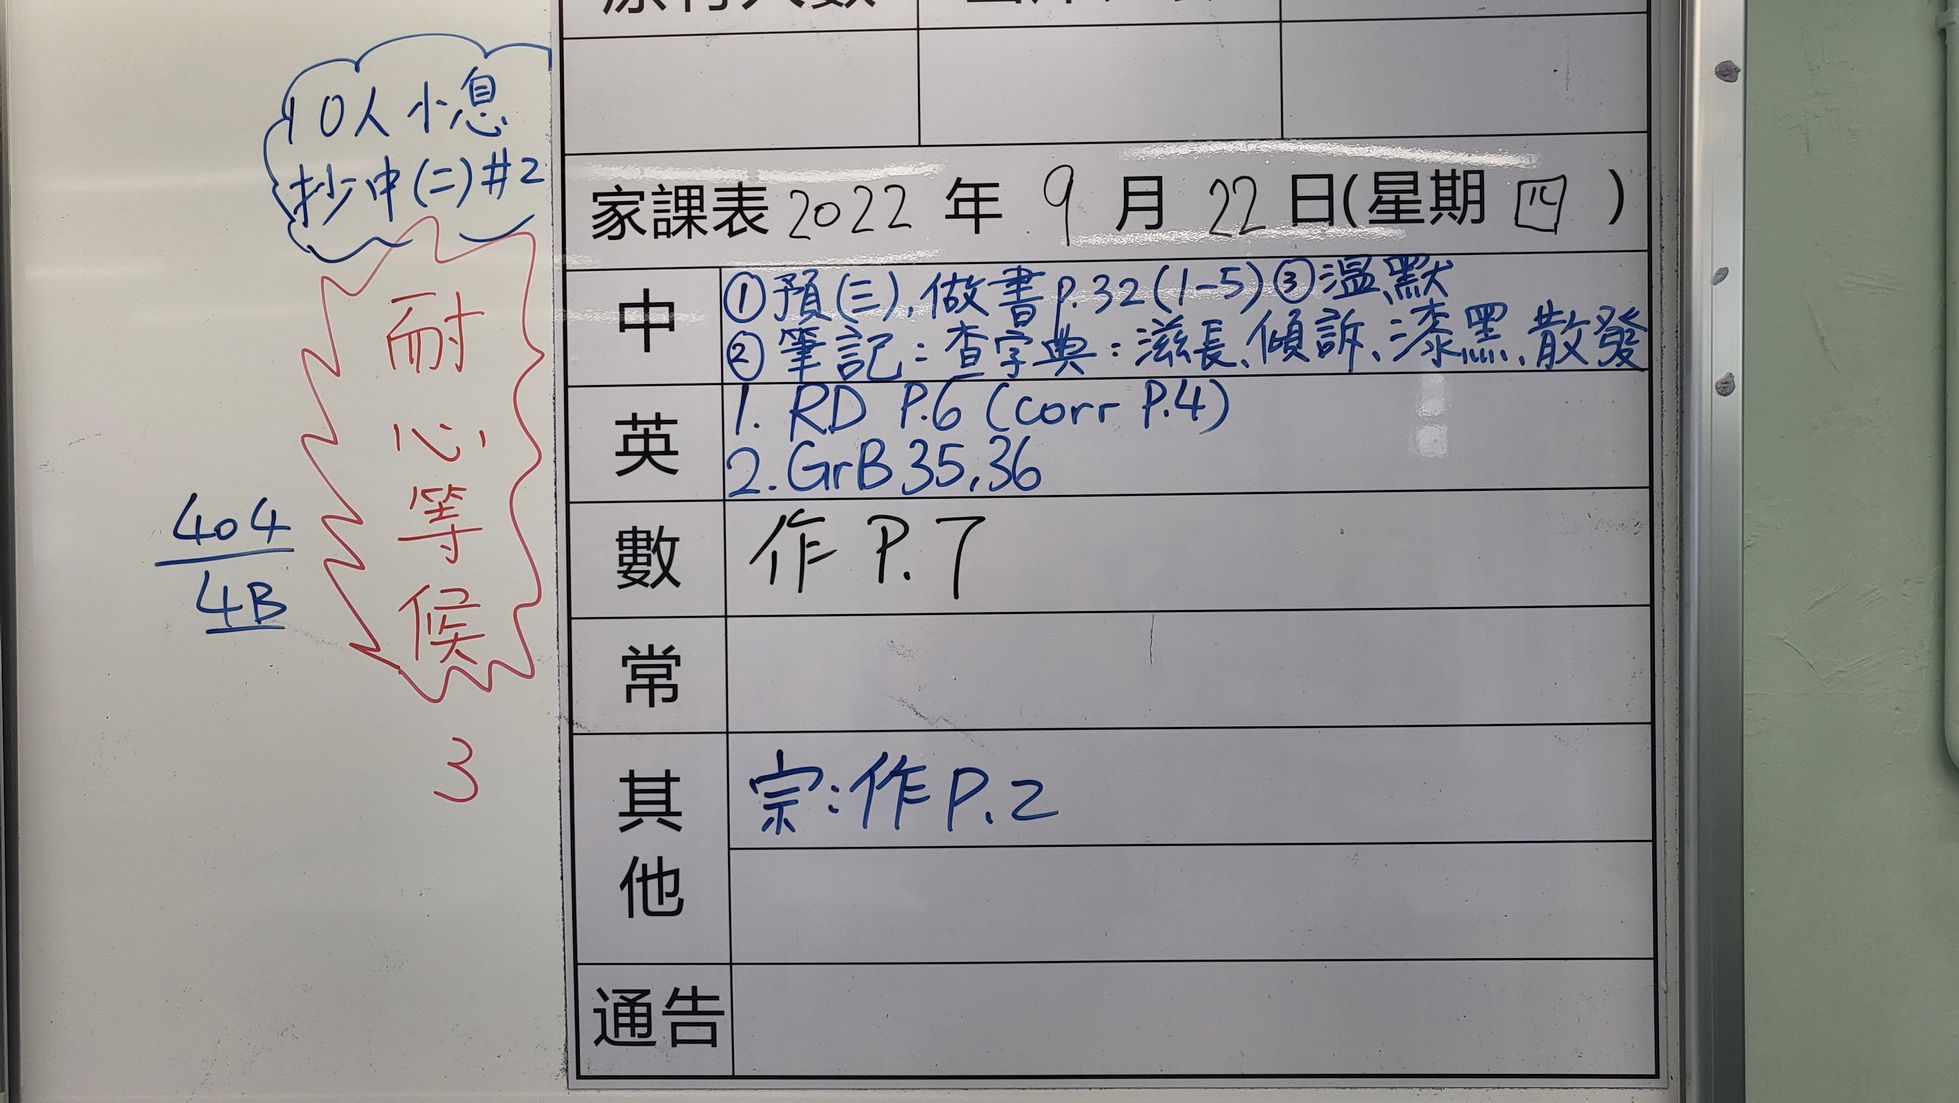 10人小息
抄中(二)#2
耐
心
等
候
3
404
4B
家課表 2022 年 9 月 22 日(星期 四 )
中
①預(三), 做書P.32(1-5)③溫默
②筆記：查字典：滋長、傾訴、漆黑、散發
英
1. RD P.6 (corr P.4)
2. GrB 35,36
數
作 P.7
常
其他
宗:作 P.2
通告